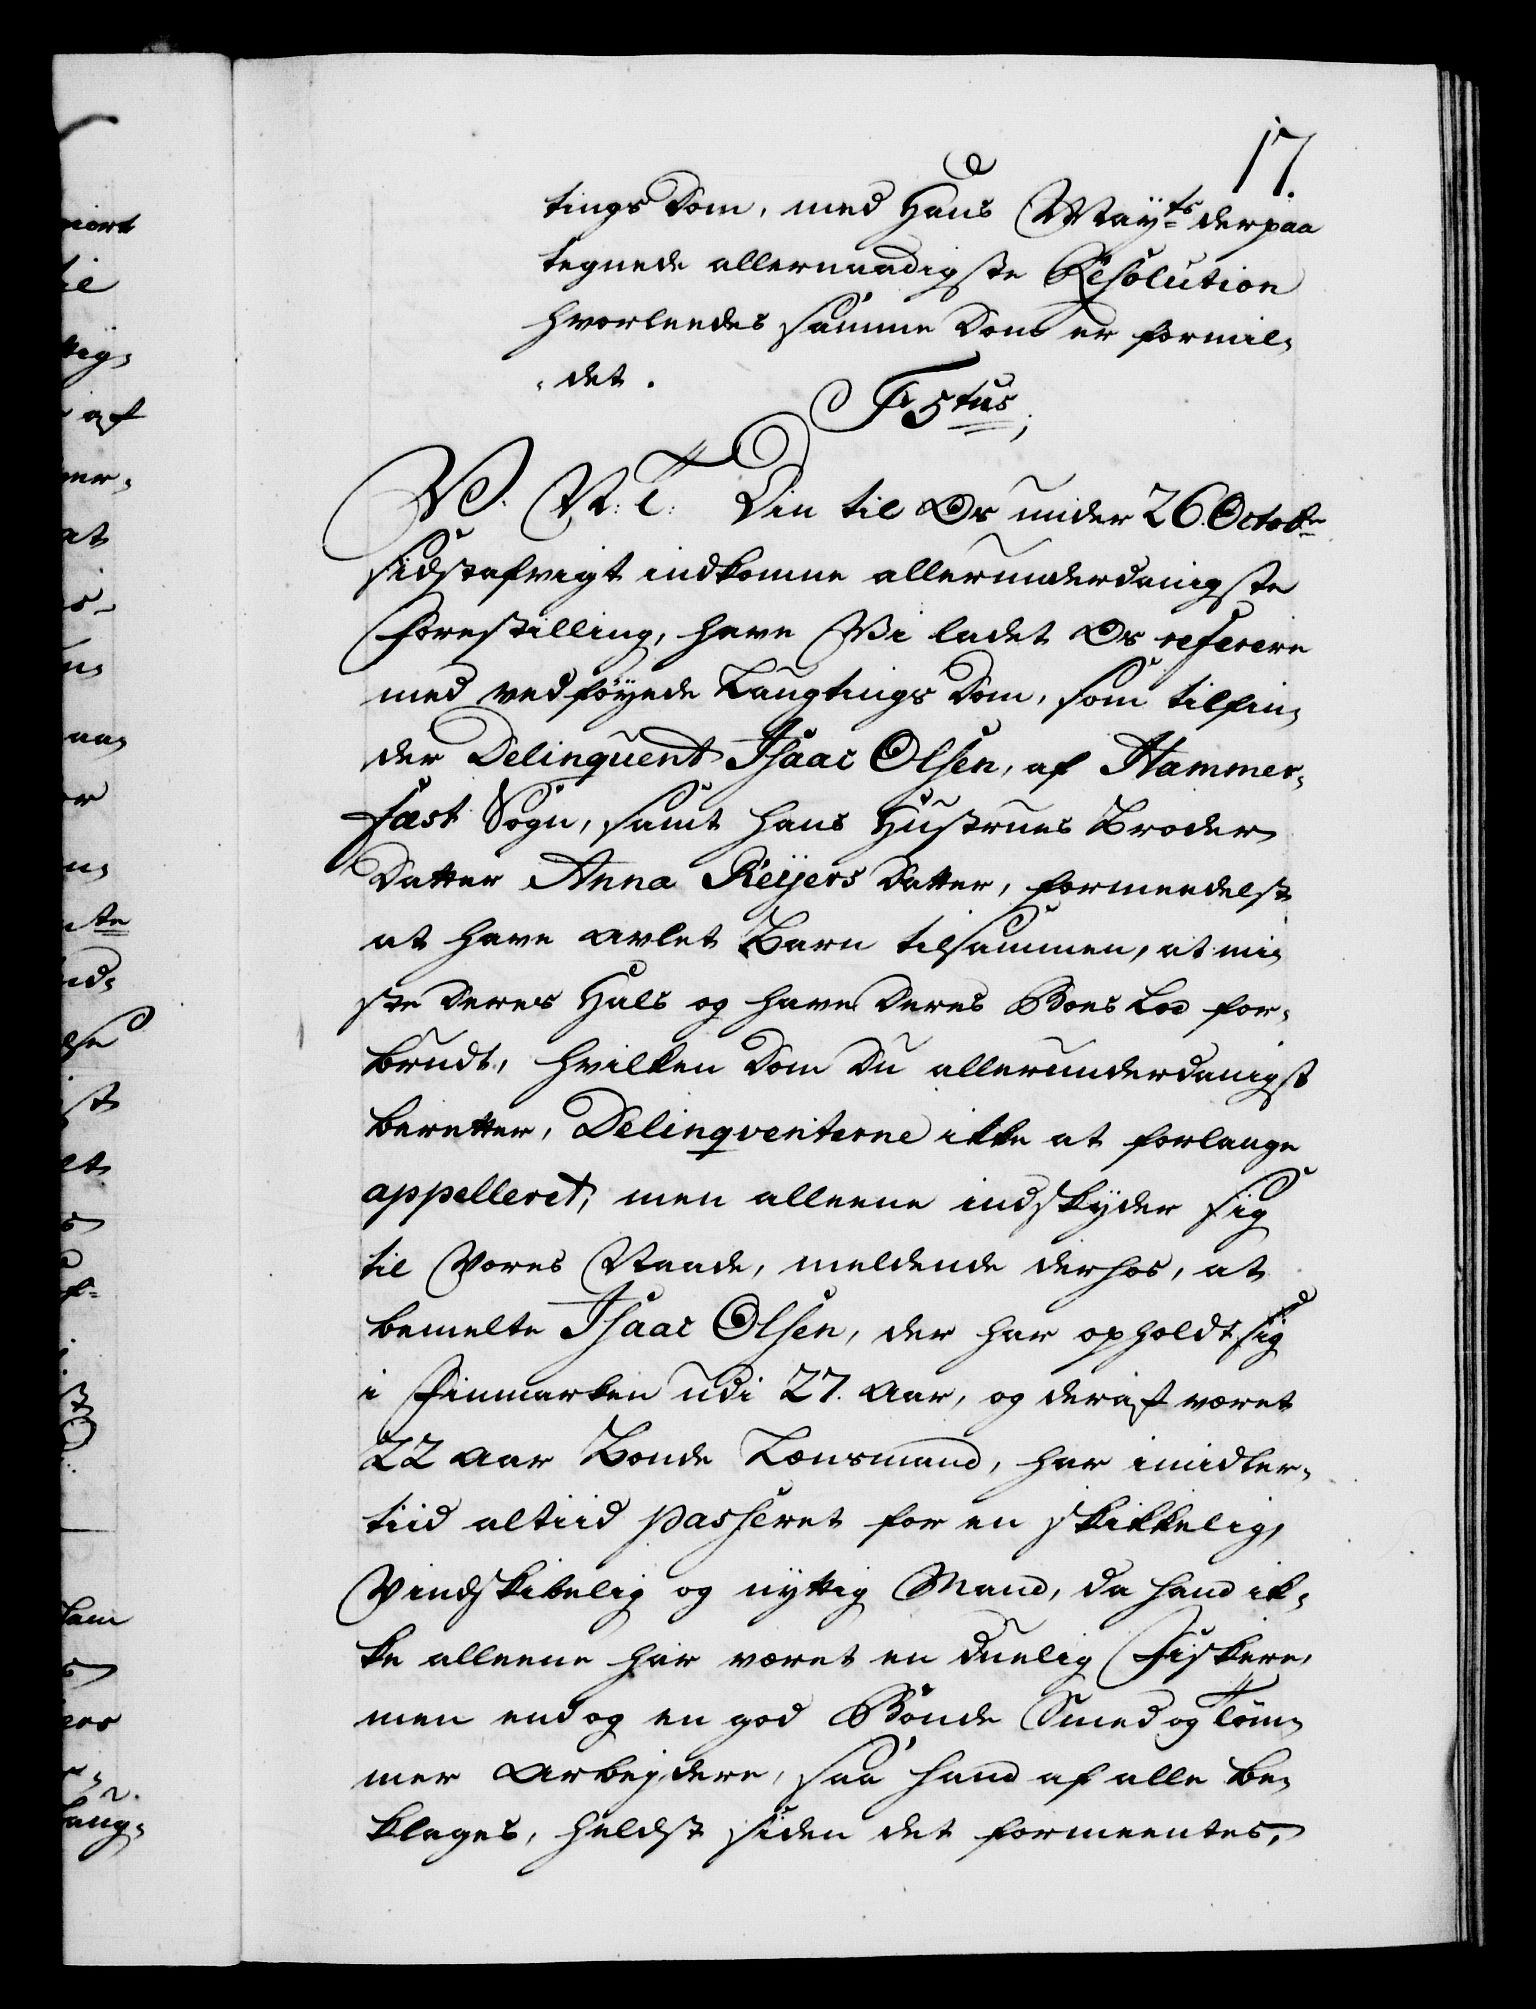 17.
tings Dom, med Hans May:ts derpaa
tegnede allernaadigste Resolution
hvorleedes samme Dom er formil-
-det.
F 5tus,
V. V: T: Din til Os under 26. Octobr
sidstafvigt indkomne allerunderdanigste
Forestilling, have Vi ladet Os referere
med vedføyede Laugtings Dom, som tilfin-
der Delinquent Isaac Olsen, af Hammer-
fæst Sogn, samt hans Hustrues Broder
Datter Anna Reijers Datter, formeedelst
at have avlet Barn tilsammen, at mi-
ste Deres Hals og have Deres Boes Lod for-
brudt, hvilken Dom Du allerunderdanigst
beretter, Delinqventerne ikke at forlange
appelleret, men alleene indskyder sig
til Vores Naade, meldende derhos, at
bemelte Isaac Olsen, der har opholdt sig
i Finmarken udi 27. Aar, og deraf været
22 Aar Bonde Lensmand, har imidler-
tiid altiid passeret for en skikkelig,
Vindskibelig og nyttig Mand, da hand ik-
ke alleene har været en duelig Fiskere,
men endog en god Bonde Smed og Tøm-
mer Arbejdere, saa hand af alle be-
klages, heldst siden det formeentes,